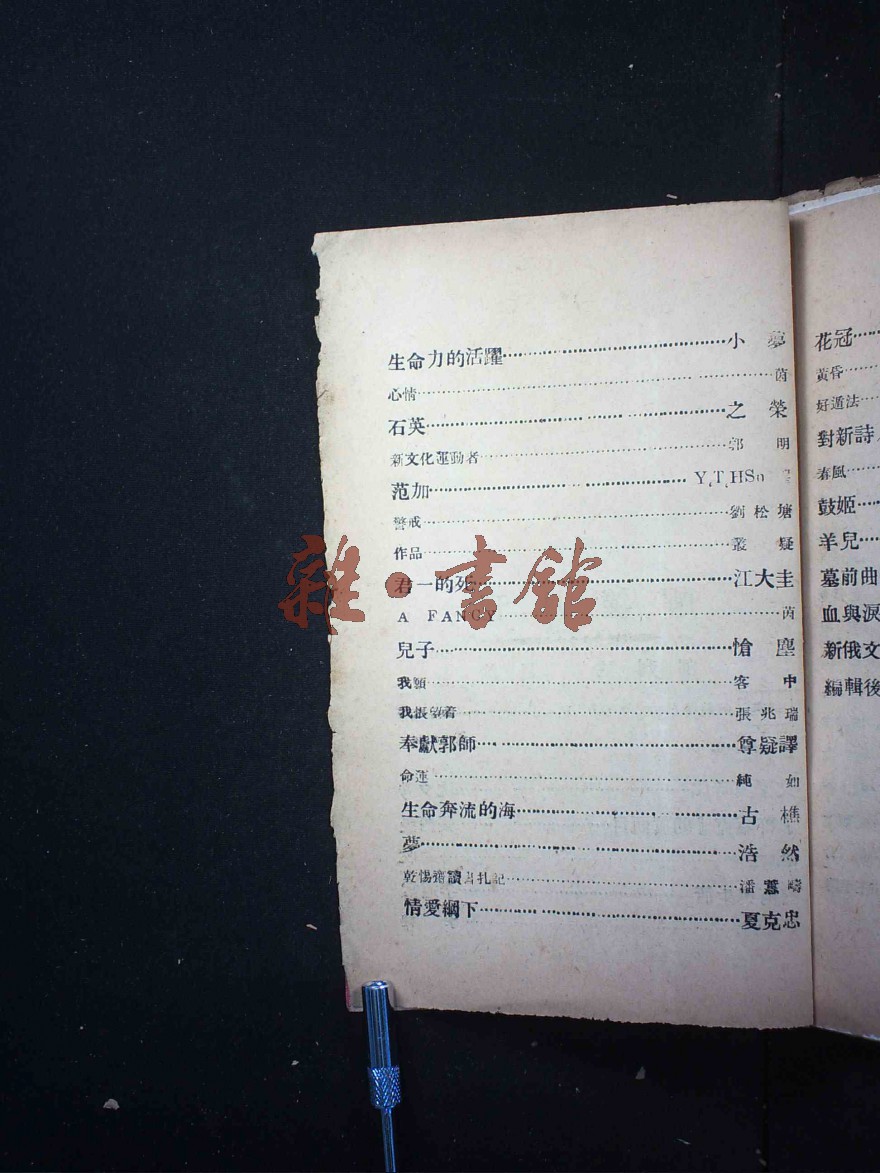 生命力的活躍……小夢
心情……茵
石英……之榮
新文化運動者……郭明
范加……Y,T,HSn
警戒……劉松塘
作品……叢疑
君一的死……江大圭
A FANCY……茵
兒子……愴塵
我願……客中
我振望着……張兆瑞
奉獻郭師……尊疑譯
命運……純如
生命奔流的海……古樵
夢……浩然
乾惕齋讀書札記……潘蕙疇
情愛網下……夏克忠
花冠……
黃昏……
好遁法……
對新詩
春風……
鼓姬……
羊兒……
墓前曲
血與淚
新俄文
編輯後
雜·書館